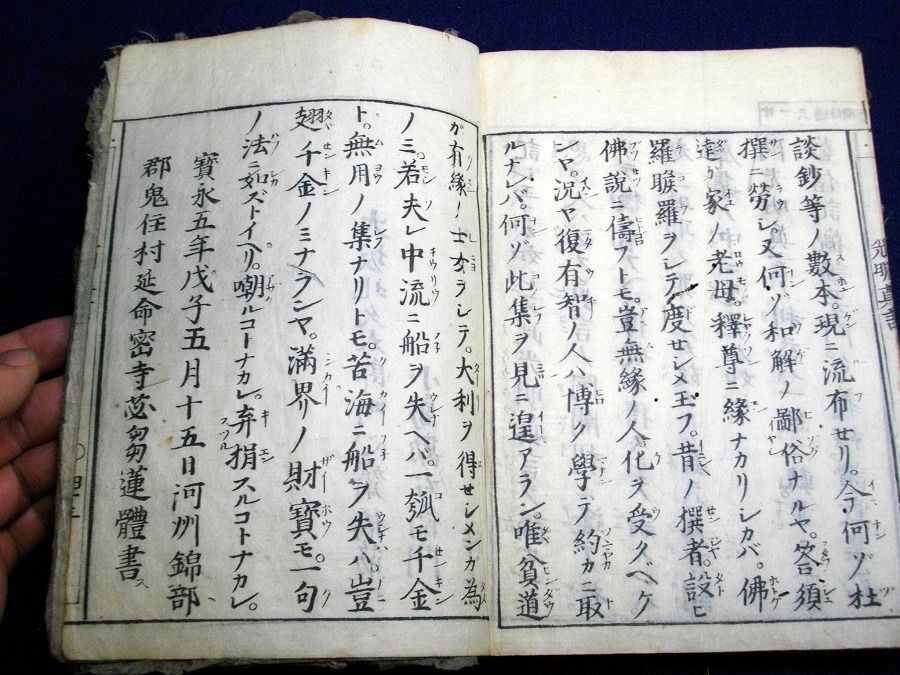 談鈔等ノ數本。現ニ流布セリ。今何ゾ杜
撰ニ勞シ。又何ゾ和解ノ鄙俗ナルヤ。答須
達ガ家ノ老母。釋尊ニ緣ナカリシカバ。佛
羅睺羅ヲシテ度セシメ玉フ。昔ノ撰者。設ヒ
佛說ニ儔フトモ。豈無緣ノ人。化ヲ受クベケ
ンヤ。況ヤ復有智ノ人ハ。博ク學テ約カニ取
ルナレバ。何ゾ此集ヲ見ニ遑アラン。唯貧道
ガ有緣ノ士女ヲシテ。大利ヲ得セシメンガ為
ノミ。若夫レ中流ニ船ヲ失ヘバ。一瓠モ千金
ト。無用ノ集ナリトモ。苦海ニ船ヲ失ハ豈
翅千金ノミナランヤ。滿界ノ財寶モ。一句
ノ法ニ如ズトイヘリ。嘲ルコトナカレ。弃捐スルコトナカレ。
寶永五年戊子五月十五日河州錦部
郡鬼住村延命密寺苾芻蓮體書